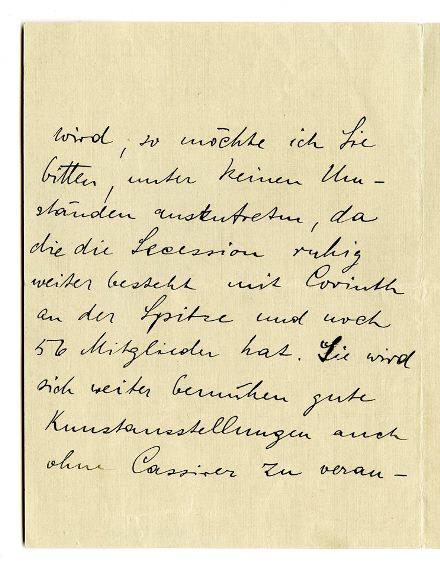 wird, so möchte ich Sie
bitten, unter keinen Um-
ständen auszutreten, da
die die Secession ruhig
weiter besteht mit Corinth
an der Spitze und noch
56 Mitglieder hat. Sie wird
sich weiter bemühen gute
Kunstausstellungen auch
ohne Cassirer zu veran-